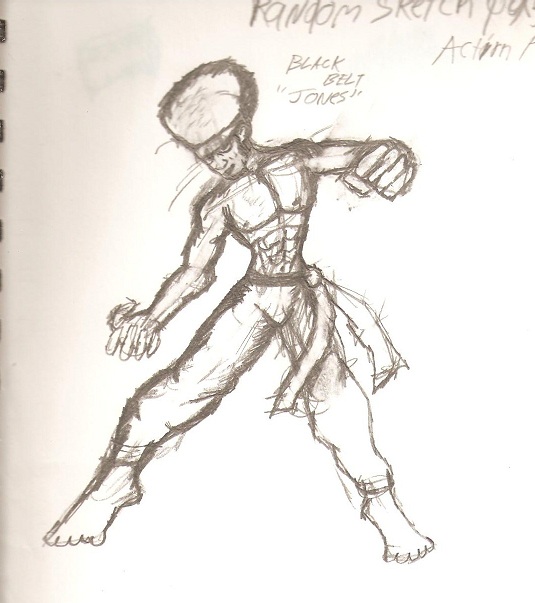 Random Sketch
Action
BLACK
BELT
"JONES"